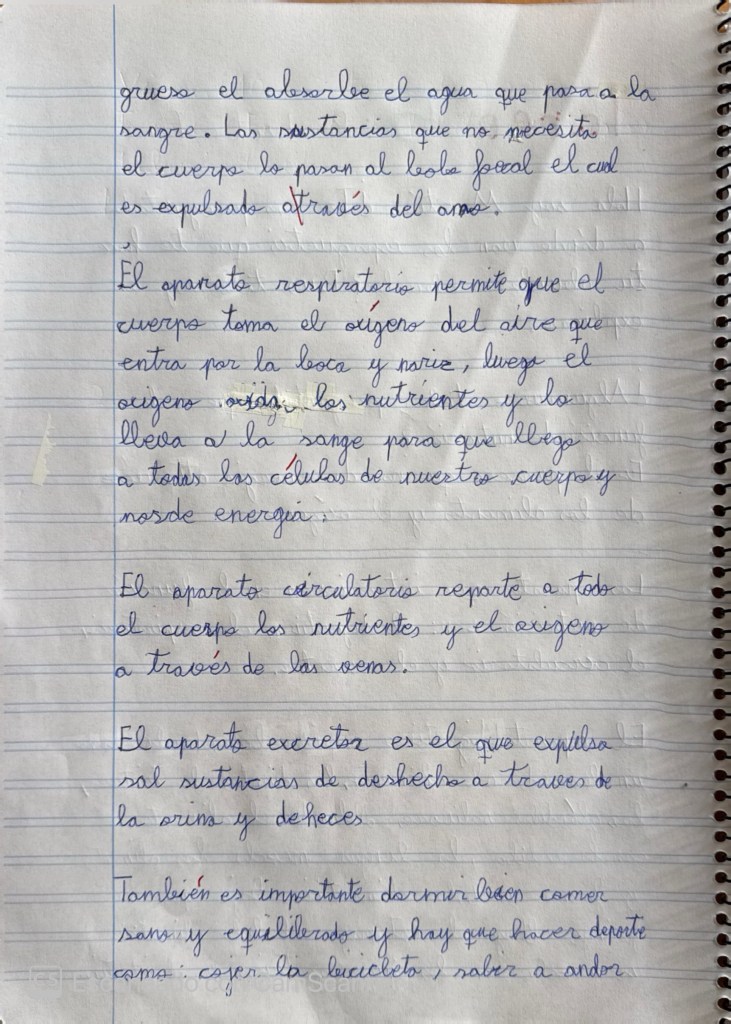 grueso el absorbe el agua que pasa a la
sangre. Las sustancias que no necesita
el cuerpo lo pasan al bolo foecal el cual
es expulsado através del ano.
El aparato respiratorio permite que el
cuerpo toma el oxígeno del aire que
entra por la boca y nariz, luego el
oxigeno oxida los nutrientes y lo
lleva a la sange para que llego
a todas las células de nuestro cuerpo y
nosde energia.
El aparato circulatorio reparte a todo
el cuerpo los nutrientes y el oxigeno
a través de las venas.
El aparato excretor es el que expulsa
sal sustancias de deshecho a traves de
la orina y deheces
También es importante dormir bien comer
sano y equilibrado y hay que hacer deporte
como: cojer la bicicleta, salir a andar